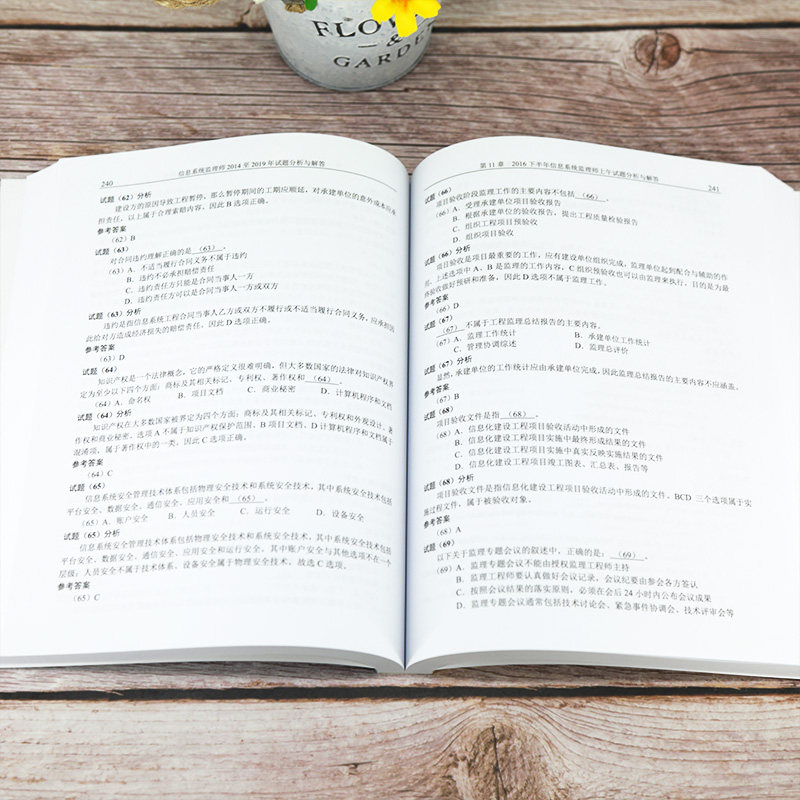 FLOWER
&
GARDEN
240
信息系统监理师 2014 至 2019 年试题分析与解答
试题（62）分析
建设方的原因导致工程暂停，那么暂停期间的工期应顺延，对承建单位的意外成本应承
担责任，以上属于合理索赔内容，因此 B 选项正确。
参考答案
（62）B
试题（63）
对合同违约理解正确的是 （63） 。
（63）A．不适当履行合同义务不属于违约
B．违约不必承担赔偿责任
C．违约责任方只能是合同当事人一方
D．违约责任方可以是合同当事人一方或双方
试题（63）分析
违约是指信息系统工程合同当事人乙方或双方不履行或不适当履行合同义务，应承担因
此给对方造成经济损失的赔偿责任。因此 D 选项正确。
参考答案
（63）D
试题（64）
知识产权是一个法律概念，它的严格定义很难明确，但大多数国家的法律对知识产权界
定为至少以下四个方面：商标及其相关标记、专利权、著作权和 （64） 。
（64）A．命名权 B．项目文档 C．商业秘密 D．计算机程序和文档
试题（64）分析
知识产权在大多数国家被界定为四个方面：商标及其相关标记、专利权和外观设计、著
作权和商业秘密。选项 A 不属于知识产权保护范围、B 项目文档、D 计算机程序和文档属于
混淆项，属于著作权中的一类，因此 C 选项正确。
参考答案
（64）C
试题（65）
信息系统安全管理技术体系包括物理安全技术和系统安全技术，其中系统安全技术包括
平台安全、数据安全、通信安全、应用安全和 （65） 。
（65）A．账户安全 B．人员安全 C．运行安全 D．设备安全
试题（65）分析
信息系统安全管理技术体系包括物理安全技术和系统安全技术，其中系统安全技术包括
平台安全、数据安全、通信安全、应用安全和运行安全，其中账户安全与其他选项不在一个
层级；人员安全不属于技术体系、设备安全属于物理安全技术。故选 C 选项。
参考答案
（65）C
第 11 章 2016 下半年信息系统监理师上午试题分析与解答
241
试题（66）
项目验收阶段监理工作的主要内容不包括 （66） 。
（66）A．受理承建单位项目验收报告
B．根据承建单位的验收报告，提出工程质量检验报告
C．组织工程项目预验收
D．组织项目验收
试题（66）分析
项目验收是项目最重要的工作，应有建设单位组织完成，监理单位起到配合与辅助的作
用。上述选项中 A、B 是监理的工作内容，C 组织预验收也可以由监理来执行，目的是为最
终验收做好预研和准备，因此 D 选项不属于监理工作。
参考答案
（66）D
试题（67）
（67） 不属于工程监理总结报告的主要内容。
（67）A．监理工作统计 B．承建单位工作统计
C．管理协调综述 D．监理总评价
试题（67）分析
显然，承建单位的工作统计应由承建单位完成，因此监理总结报告的主要内容不应涵盖。
参考答案
（67）B
试题（68）
项目验收文件是指 （68） 。
（68）A．信息化建设工程项目验收活动中形成的文件
B．信息化建设工程项目实施中最终形成结果的文件
C．信息化建设工程项目实施中真实反映实施结果的文件
D．信息化建设工程项目竣工图表、汇总表、报告等
试题（68）分析
项目验收文件是指信息化建设工程项目验收活动中形成的文件。BCD 三个选项属于实
施过程文件，属于被验收对象。
参考答案
（68）A
试题（69）
以下关于监理专题会议的叙述中，正确的是： （69） 。
（69）A．监理专题会议不能由授权监理工程师主持
B．监理工程师要认真做好会议记录，会议纪要由参会各方签认
C．按照会议结果的落实原则，必须在会后 24 小时内公布会议成果
D．监理专题会议通常包括技术讨论会、紧急事件协调会、技术评审会等